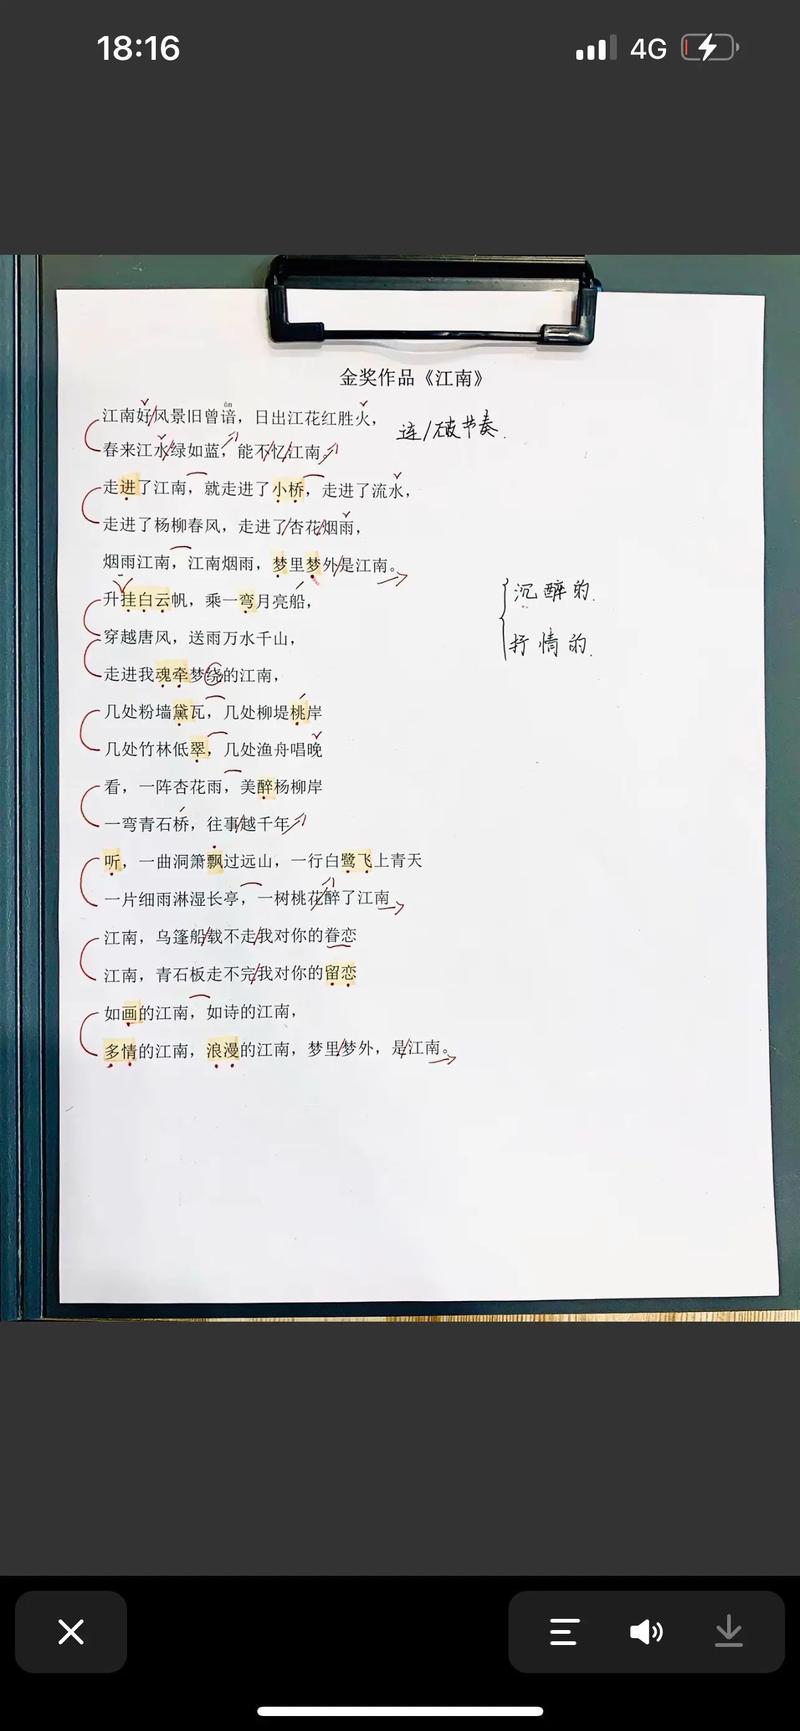 18:16
4G
金奖作品《江南》
ān
江南好/风景旧曾谙，日出江花红胜火，
连/破节奏.
春来江水/绿如蓝，能不/忆/江南
走进了江南，就走进了小桥，走进了流水，
走进了杨柳春风，走进了/杏花/烟雨，
烟雨江南，江南烟雨，梦里梦外/是江南。
升挂白云帆，乘一弯月亮船，
沉醉的.
穿越唐风，送雨万水千山，
抒情的.
走进我魂牵梦绕的江南，
几处粉墙黛瓦，几处柳堤桃岸
几处竹林低翠，几处渔舟唱晚
看，一阵杏花雨，美醉杨柳岸
一弯青石桥，往事/越千年
听，一曲洞箫飘过远山，一行白鹭飞上青天
一片细雨淋湿长亭，一树桃花/醉了江南
江南，乌篷船/载不走/我对你的眷恋
江南，青石板走不完/我对你的留恋
如画的江南，如诗的江南，
多情的江南，浪漫的江南，梦里/梦外，是/江南。